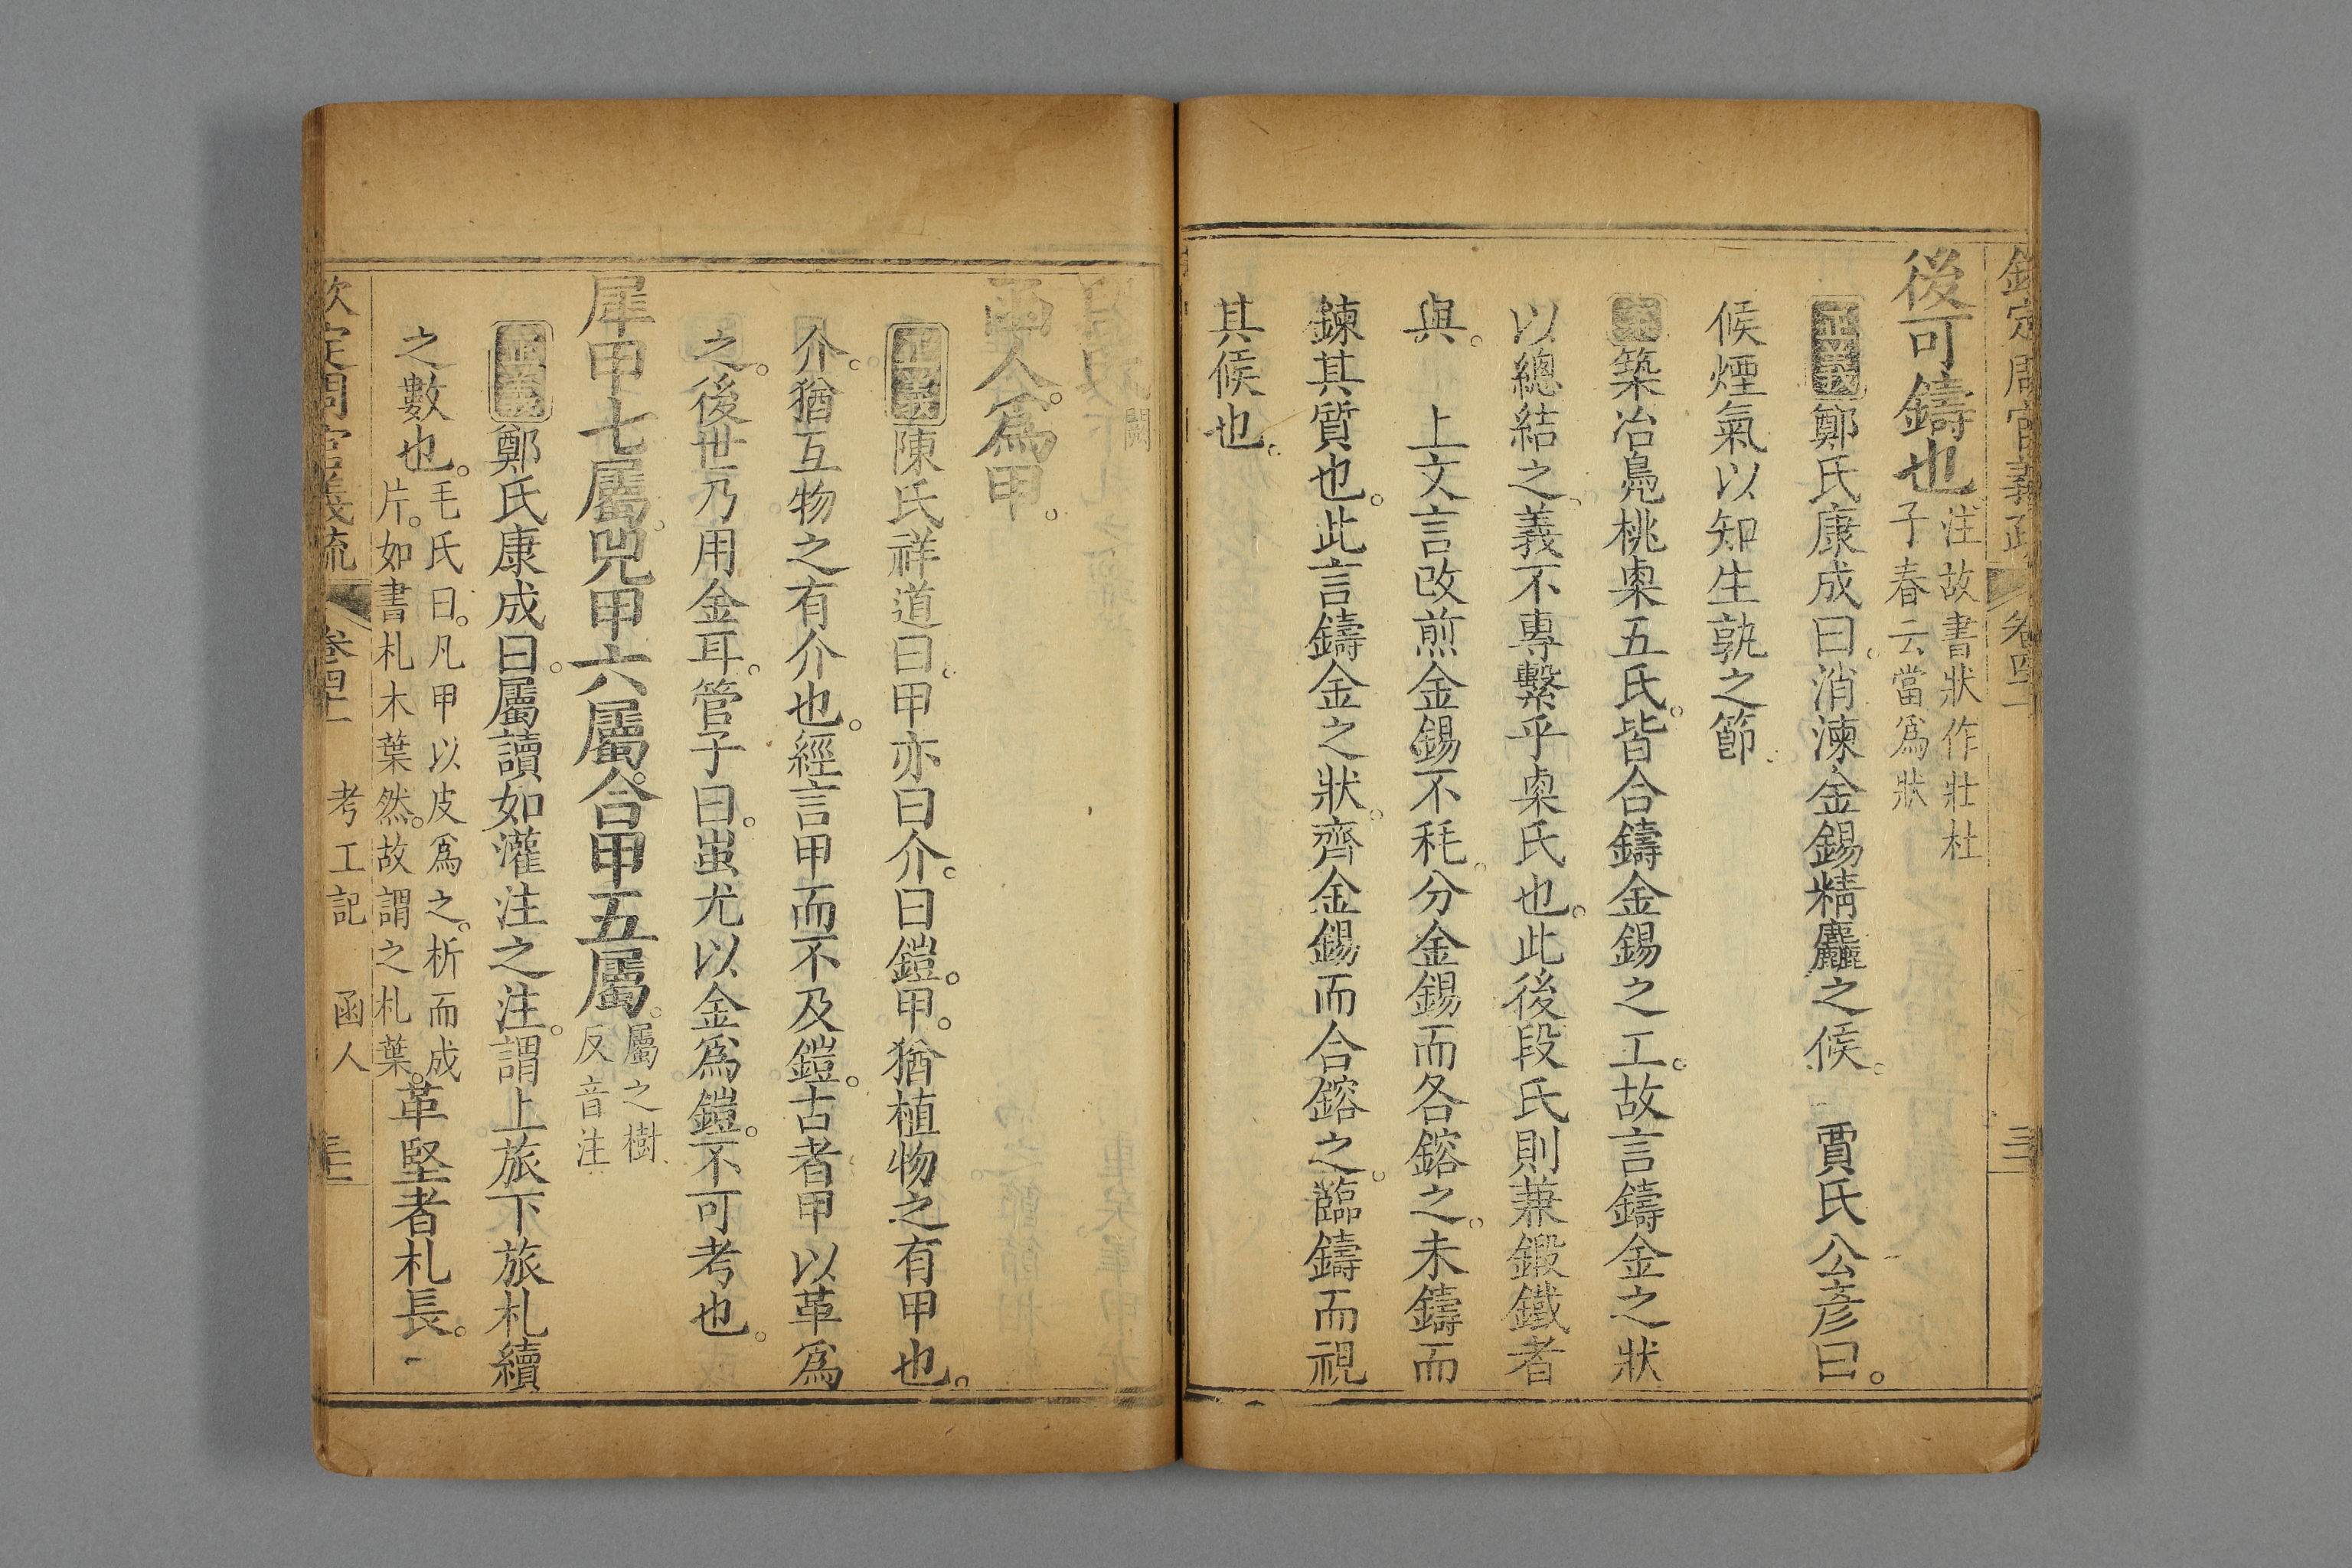 欽定周官義疏 卷四十
後可鑄也注故書狀作壯杜
子春云當爲狀
正義鄭氏康成曰消湅金錫精麤之候 賈氏公彥曰
候煙氣以知生孰之節
案築冶鳧桃㮚五氏皆合鑄金錫之工故言鑄金之狀
以總結之義不專繫乎㮚氏也此後段氏則兼鍛鐵者
與 上文言改煎金錫不秏分金錫而各鎔之未鑄而
鍊其質也此言鑄金之狀齊金錫而合鎔之臨鑄而視
其候也
段氏闕
函人爲甲
正義陳氏祥道曰甲亦曰介曰鎧甲猶植物之有甲也
介猶互物之有介也經言甲而不及鎧古者甲以革爲
之後世乃用金耳管子曰蚩尤以金爲鎧不可考也
犀甲七屬兕甲六屬合甲五屬屬之樹
反音注
正義鄭氏康成曰屬讀如灌注之注謂上旅下旅札續
之數也毛氏曰凡甲以皮爲之析而成
片如書札木葉然故謂之札葉革堅者札長
欽定周官義疏 卷四十 考工記 函人